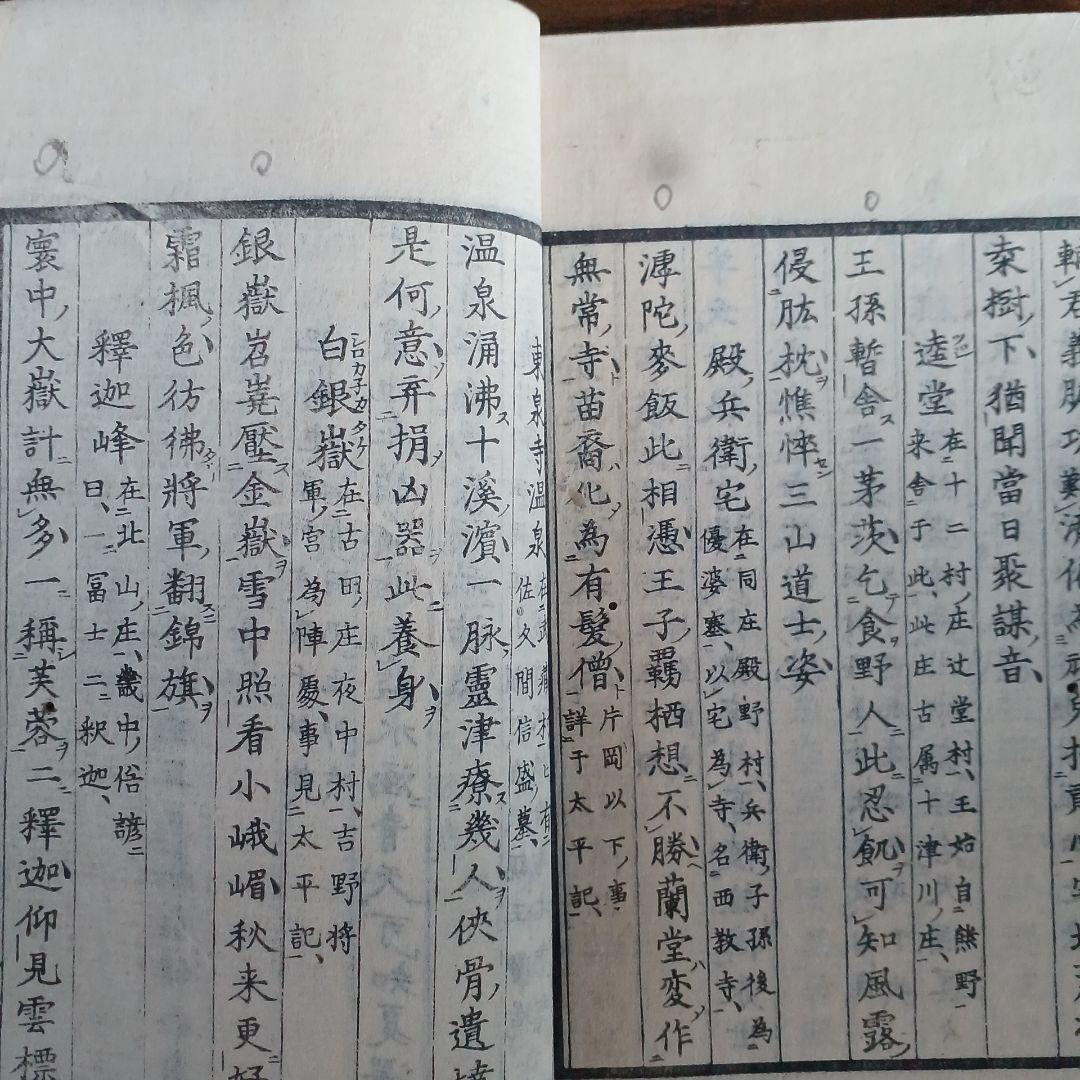 輔君義
桒樹下猶聞當日聚謀音
逵堂
在十二村庄辻堂村王始自熊野
来舎于此此庄古属十津川庄
王孫暫舎一茅茨乞食野人此忍飢可知風露
侵肱枕憔悴三山道士姿
殿兵衛宅
在同庄殿野村兵衛子孫後為
優婆塞以宅為寺名西教寺
滹陀麥飯此相憑王子羇栖想不勝蘭堂変作
無常寺苗裔化為有髮僧
片岡以下事
詳于太平記
東泉寺温泉
佐久間信盛墓
温泉涌沸十溪濵一脉靈津療幾人俠骨遺
是何意弃捐凶器此養身
白銀嶽
シロカ子カタケ
在古田庄夜中村吉野将
軍宮為陣處事見太平記
銀嶽岧嶤壓金嶽雪中照看小峨嵋秋来更好
霜楓色彷彿將軍翻錦旗
釋迦峰
在北山庄畿中俗諺
曰一冨士二釈迦
寰中大嶽計無多一稱芙蓉二釋迦仰見雲標